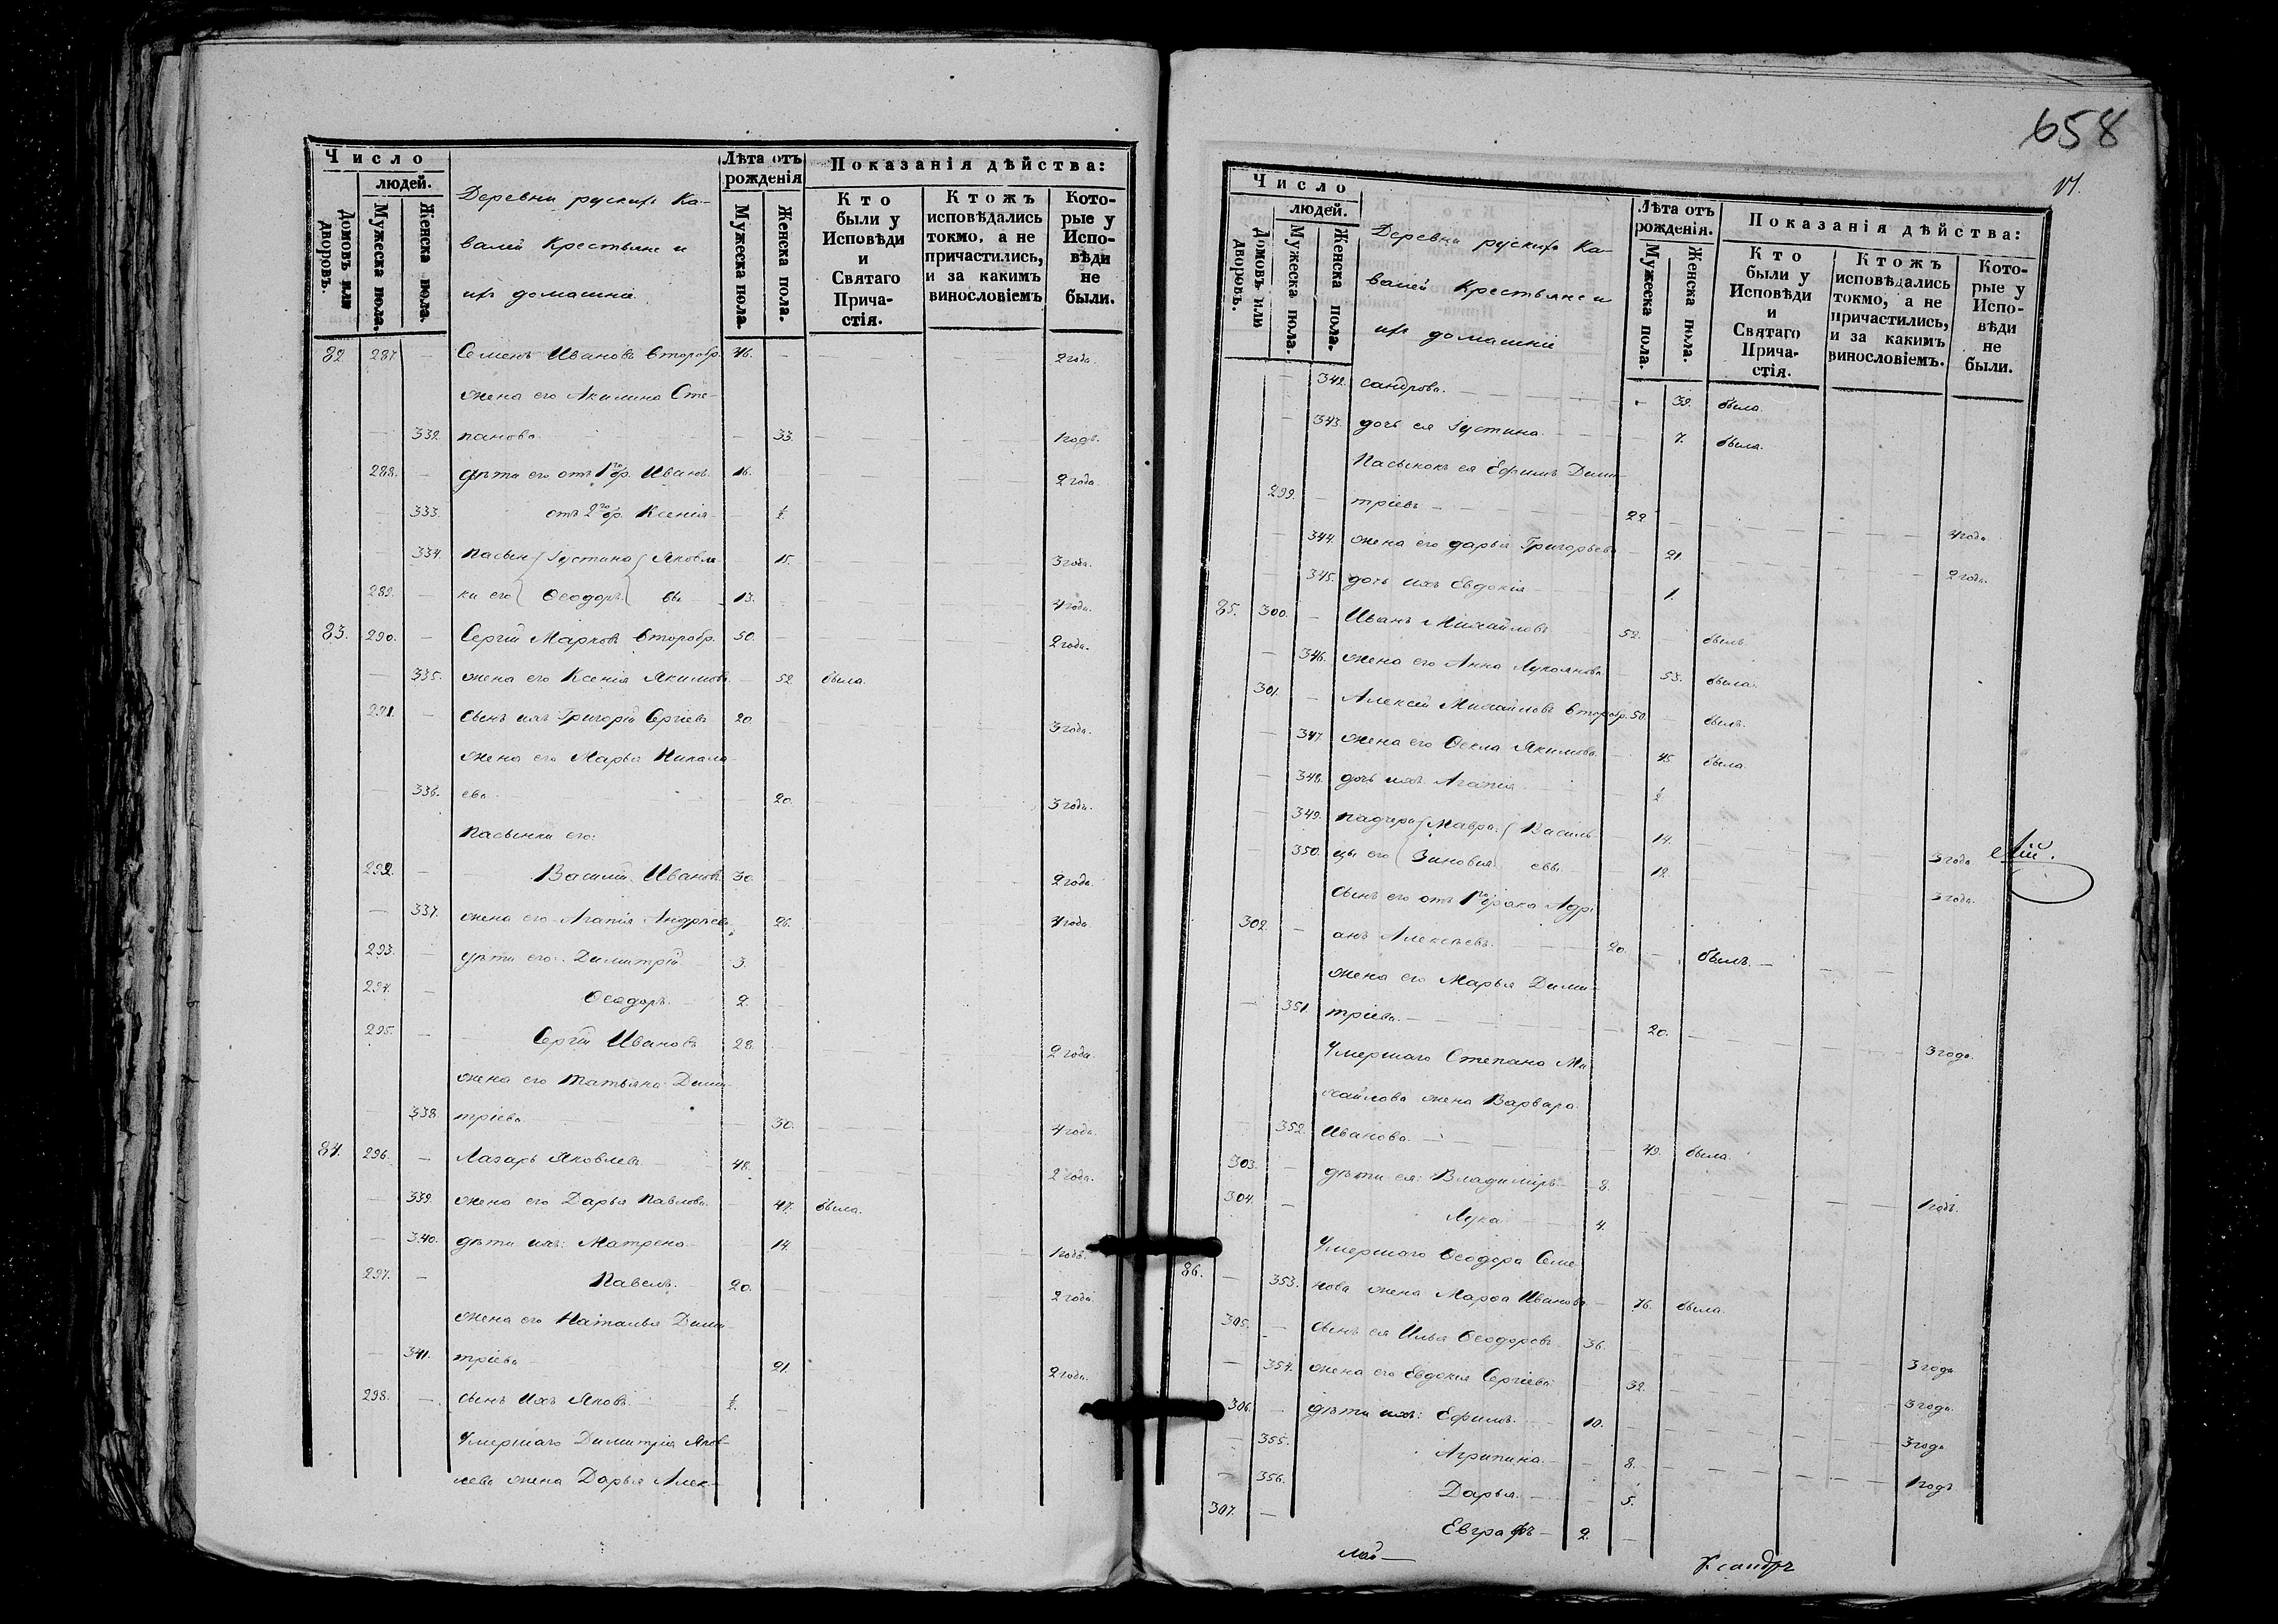 Число
людей.
Домовъ или дворовъ.
Мужеска пола.
Женска пола.
Деревни руских Ка-
валей Крестьяне и
их домашніе
Лѣта отъ рожденія
Мужеска пола.
Женска пола.
Показанія дѣйства:
Кто были у Исповѣди и Святаго Прича-стія.
Ктожъ исповѣдались токмо, а не причастились, и за какимъ винословіемъ
Кото-рые у Испо-вѣди не были.
82 287. — Семенъ Ивановъ второбр. 46. — 2 года.
жена его Акилина Сте-
— 332. панова — 33. 1 годъ.
288. — дѣти его отъ 1го бр. Иванъ. 16. — 2 года
— 333. отъ 2го бр. Ксенія — ½.
— 334. пасын{Іустина{Яковле 15. 3 года.
289. — ки его{Ѳеодоръ{вы — 13. 4 года.
83. 290. — Сергій Марковъ второбр. 50. — 2 года.
— 335. жена его Ксенія Якимова. — 52 была.
291. — сынъ ихъ Григорій Сергіевъ 20. 3 года.
жена его Марья Никола-
— 336. ева — 20. 3 года.
пасынки его:
292. — Василій Ивановъ 30. 2 года.
— 337. жена его Агапія Андреева — 26. 4 года
293. — дѣти его: Димитрій 3.
294. — Ѳеодоръ. 2.
295. — Сергій Ивановъ 28. 2 года.
жена его Татьяна Дими-
— 338 тріева — 30. 4 года.
84. 296. — Лазарь Яковлевъ 48. 2 года.
— 339. жена его Дарья Павлова. — 47. была.
— 340. дѣти ихъ: Матрена — 14. 1 годъ
297. — Павелъ. — 20. 2 года.
жена его Наталья Дими-
— 341. тріева 21. 2 года.
298. — сынъ ихъ Яковъ. ½. —
Умершаго Димитрія Яков-
лева жена Дарья Алек-
658
Число
людей.
Домовъ или дворовъ.
Мужеска пола.
Женска пола.
Деревни руских Ка-
валей Крестьяне и
их домашніе
Лѣта отъ рожденія.
Мужеска пола.
Женска пола.
Показанія дѣйства:
Кто были у Исповѣди и Святаго Прича-стія.
Ктожъ исповѣдались токмо, а не причастились, и за какимъ винословіемъ.
Кото-рые у Испо-вѣди не были.
— 342. сандрова. — 39. была.
— 343. дочь ея Іустина. — 7. была.
Пасынокъ ея Ефимъ Дими-
299. — тріевъ — 22 4 года
— 344. жена его Дарья Григорьева — 21. 2 года.
345. дочь ихъ Евдокія 1.
85. 300. — Иванъ Михайловъ 52. — былъ.
— 346. жена его Анна Лукоянова — 53. была.
301. — Алексѣй Михайловъ второбр. 50. — былъ.
— 347 жена его Ѳекла Якимова. — 45 была.
— 348. дочь ихъ Агапія ½
— 349. падчери{Мавра{Василь- 14. 3 года
— 350. цы его{Зиновія{евы 12. 3 года.
сынъ его отъ 1го брака Адрі-
302. — анъ Алексѣевъ. 20. — былъ. —
жена его Марья Дими-
— 351. тріева. 20. 3 года.
Умершаго Степана Ми-
хайлова жена Варвара
352. Иванова. — 49. была.
303. — дѣти ея: Владиміръ — 8. 1 годъ.
304. — Лука 4.
Умершаго Ѳеодора Семе-
86. — 353. нова жена Марѳа Иванова — 76. была.
305. — сынъ ея Илья Ѳеодоровъ 36. 3 года
— 354. жена его Евдокія Сергіева 32. 3 года.
306. — дѣти ихъ: Ефимъ. 10. 3 года
— 355. Агрипина. — 8. 1 годъ
— 356. Дарья. — 5.
307. — Евграфъ — 2. —